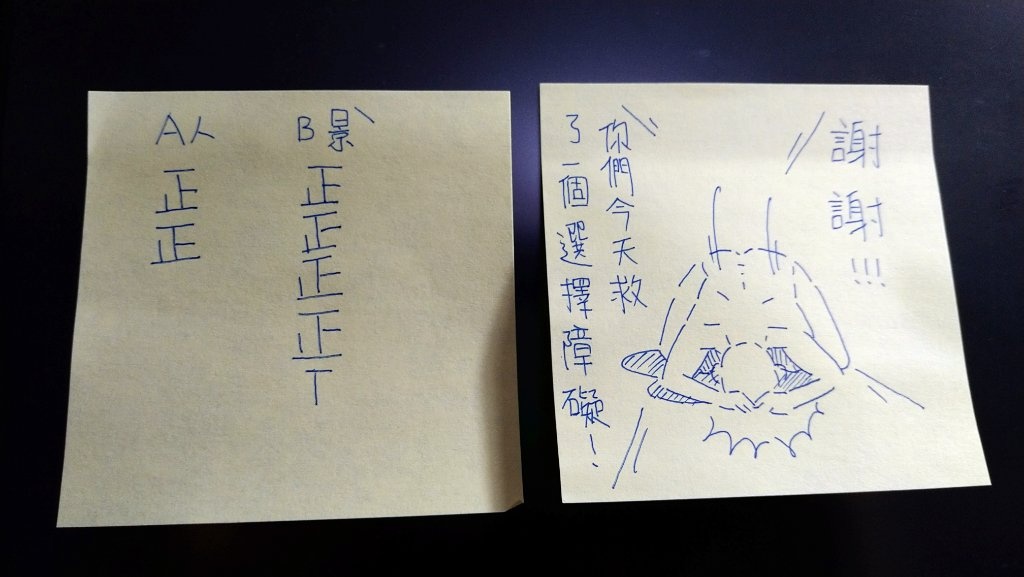 A人
正
正
B景
正
正
正
正
T
謝謝!!!
你們今天救
了一個選擇障礙!